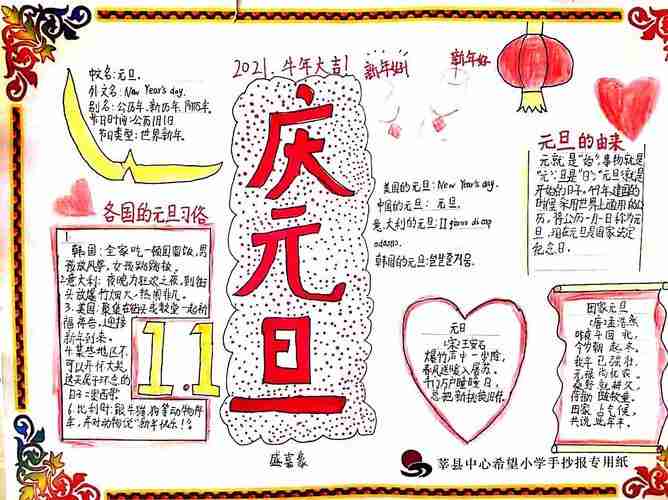 2021.牛年大吉!
新年好!
新年好
庆元旦
中文名:元旦.
外文名:New Year's day.
别名:公历年、新历年、阳历年.
节日时间:公历1月1日
节日类型:世界新年.
各国的元旦习俗
1.
韩国:全家吃一顿团圆饭,男
孩放风筝,女孩跳跳板.
2意大利:夜晚为狂欢之夜,到街
头放爆竹烟火,热闹非凡.
3.美国:聚集在街头或教堂一起祈
福祷告,迎接
新年到来.
4.某些地区不
可以开怀大笑,
这天属于怀念的
日子:墨西哥
6.比利时:跟牛、猫、狗等动物拜
年,并对动物说"新年快乐!"。
1.1
美国的元旦:New Year's day.
中国的元旦: 元旦.
意大利的元旦:
韩国的元旦:
元旦的由来
元就是"始",事物就是
"元",旦是"日","元旦"就是
开始的日子。49年建国的
时候采用世界上通用的公
历。将公历一月一日称为元
旦,现在元旦是国家法定
纪念日.
元日
(宋)王安石
爆竹声中一岁除,
春风送暖入屠苏.
千门万户曈曈日,
总把新桃换旧符.
田家元旦
(唐)孟浩然
昨夜斗回北,
今朝岁起东.
我年已强壮,
无禄尚忧农.
桑野就耕父,
荷锄随牧童.
田家占气候,
共说此年丰.
盛嘉豪
莘县中心希望小学手抄报专用纸